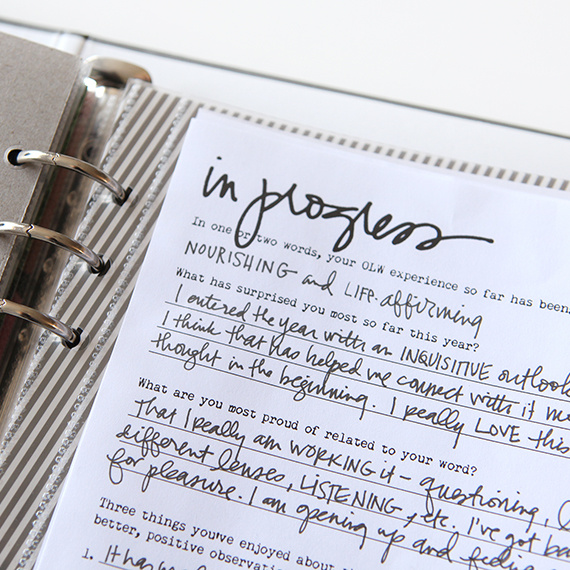 in progress
In one or two words, your OLW experience so far has been
NOURISHING and LIFE-affirming
What has surprised you most so far this year?
I entered the year with an INQUISITIVE outlook
I think that has helped me connect with it mo
thought in the beginning. I really LOVE this
What are you most proud of related to your word?
That I really am WORKING it - questioning, l
different lenses, LISTENING, etc. I've got ba
for pleasure. I am opening up and feeling
Three things you've enjoyed about th
better, positive observatio
1. It has